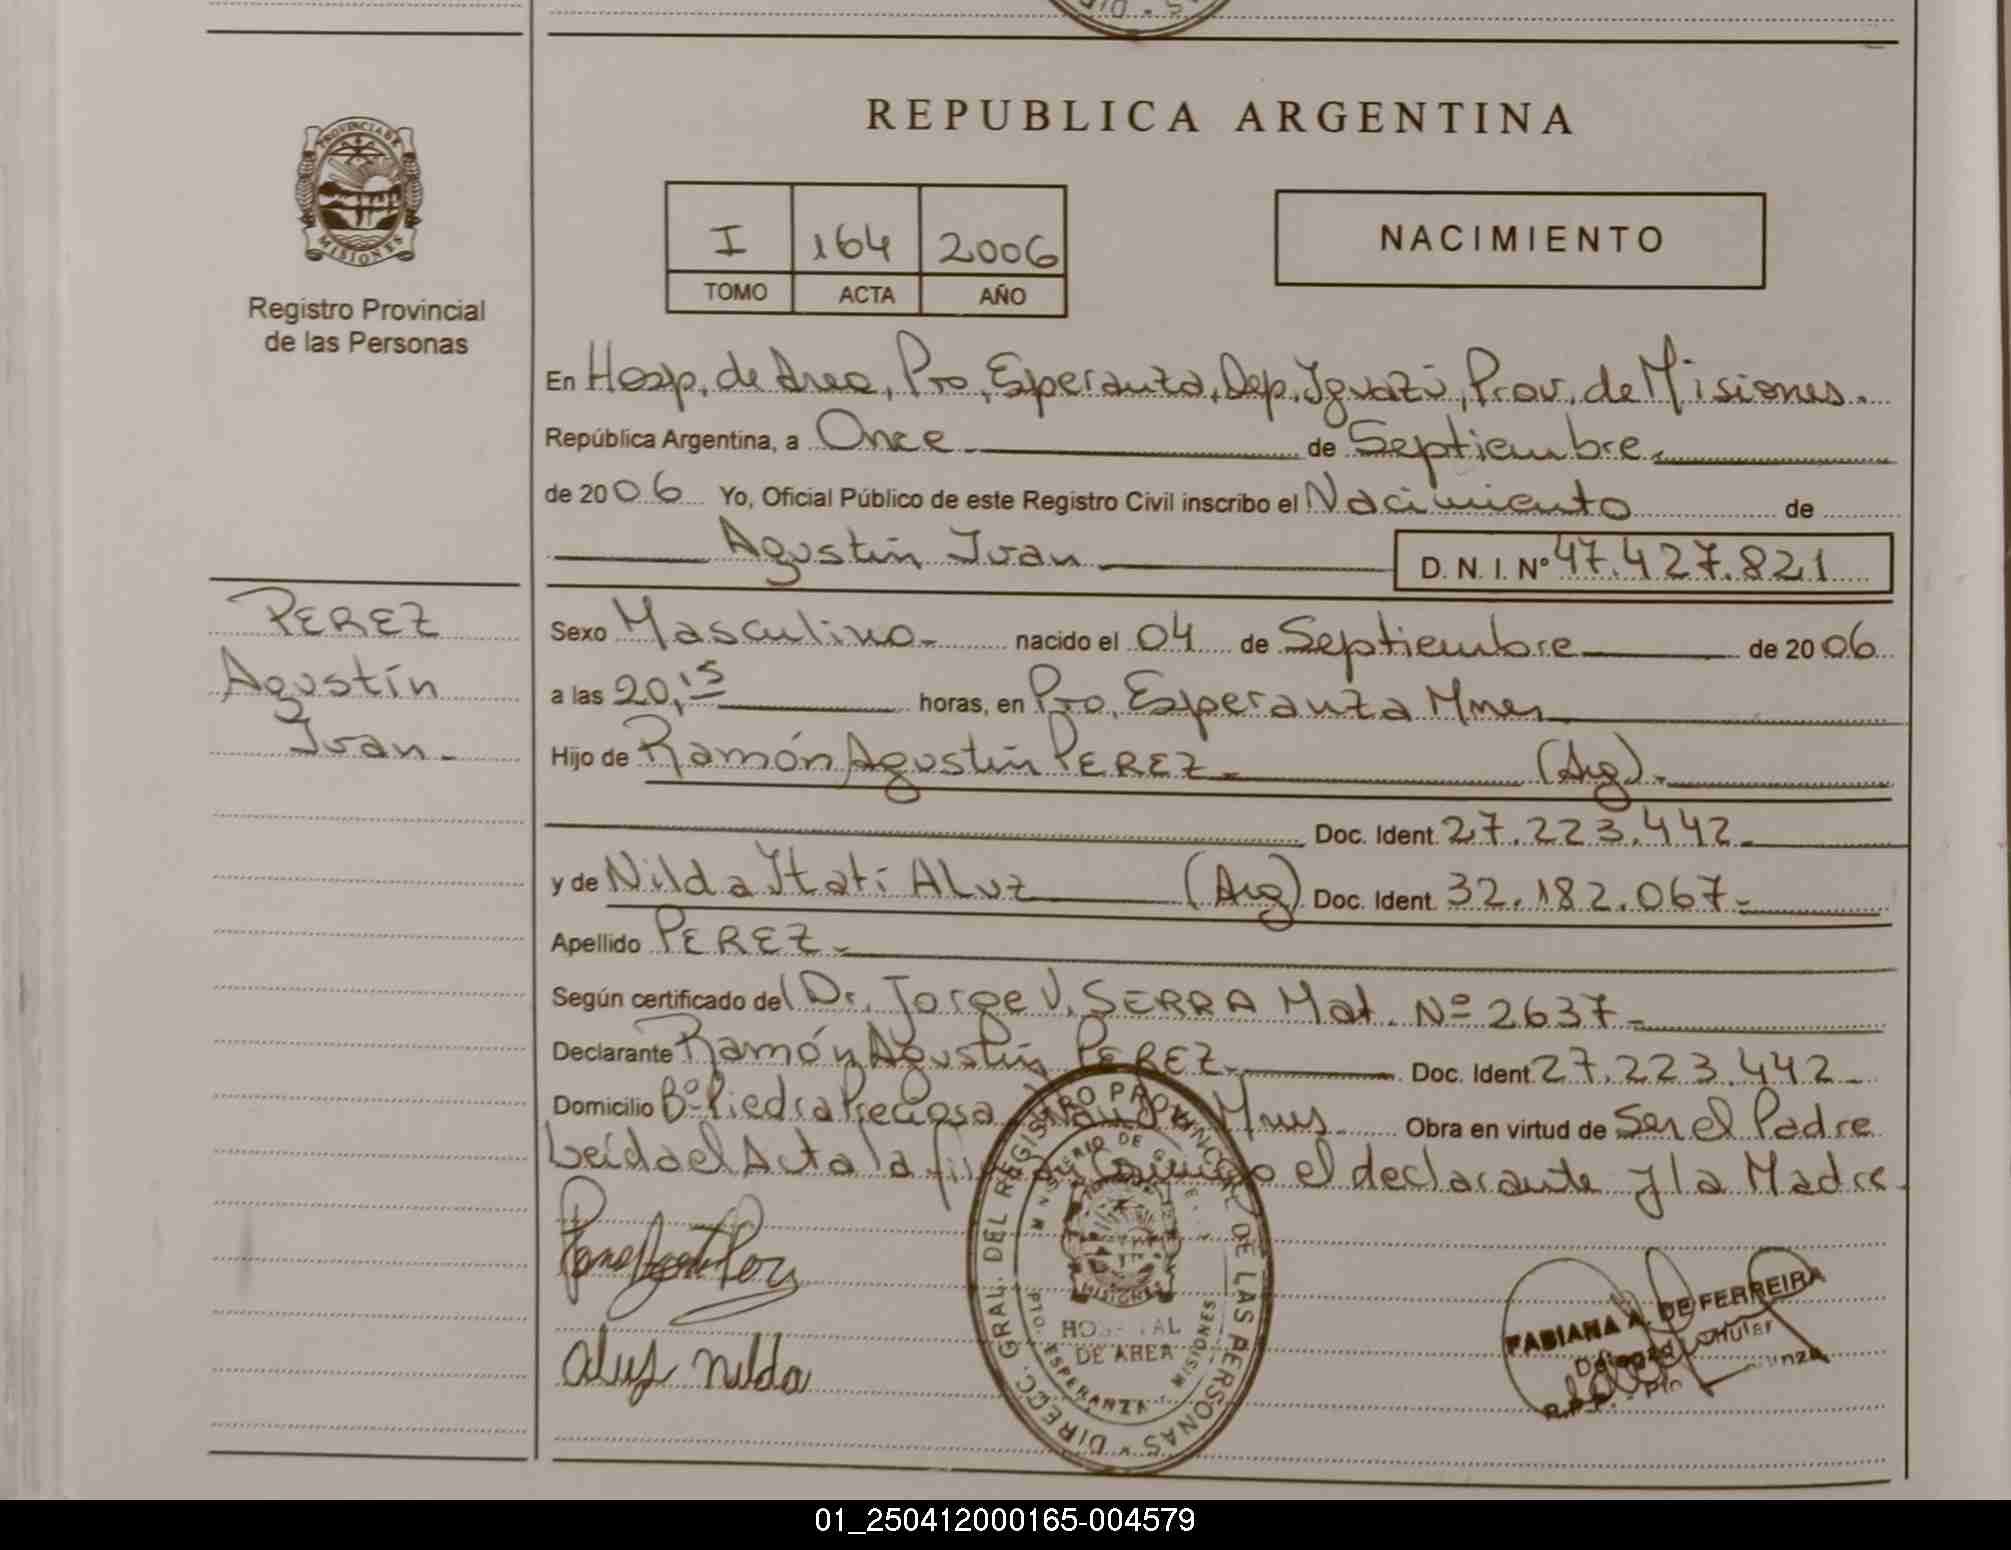 REPUBLICA ARGENTINA
PROVINCIA DE
MISIONES
Registro Provincial
de las Personas
I 164 2006
TOMO ACTA AÑO
NACIMIENTO
En Hosp. de Area, Pto. Esperanza, Dep. Iguazú, Prov. de Misiones.
República Argentina, a Once de Septiembre
de 2006 Yo, Oficial Público de este Registro Civil inscribo el Nacimiento de
Agustín Ivan D. N. I. Nº 47.427.821
PEREZ
Agustín
Ivan.-
Sexo Masculino.- nacido el 04 de Septiembre de 2006
a las 20,15 horas, en Pto. Esperanza Mnes
Hijo de Ramón Agustín PEREZ.- (Arg).-
Doc. Ident. 27.223.442.-
y de Nilda Itatí ALUZ (Arg) Doc. Ident. 32.182.067.-
Apellido PEREZ.-
Según certificado del Dr. Jorge V. SERRA Mat. Nº 2637.-
Declarante Ramón Agustín PEREZ. Doc. Ident. 27.223.442.-
Domicilio Bº Piedra Preciosa Mnes. Obra en virtud de Ser el Padre
Leída el Acta la firman conmigo el declarante y la Madre.
DIREC. GRAL. DEL REGISTRO PROVINCIAL DE LAS PERSONAS
MINISTERIO DE
MISIONES
HOSPITAL
DE AREA
PTO. ESPERANZA - MISIONES
Aluz Nilda
FABIANA A. DE FERREIRA
Titular
R.P.P. - Pto
01_250412000165-004579